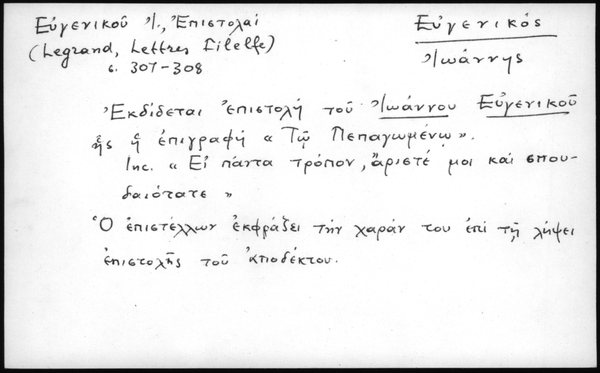 Εὐγενικοῦ Ἰ., Ἐπιστολαί
(Legrand, Lettres Filelfe)
σ. 307-308
Εὐγενικός
Ἰωάννης
Ἐκδίδεται ἐπιστολή τοῦ Ἰωάννου Εὐγενικοῦ
ἧς ἡ ἐπιγραφή « Τῷ Πεπαγωμένῳ ».
Inc. « Εἰ πάντα τρόπον, ἄριστέ μοι καί σπου-
δαιότατε »
Ὁ ἐπιστέλλων ἐκφράζει τήν χαράν του ἐπί τῇ λήψει
ἐπιστολῆς τοῦ ἀποδέκτου.